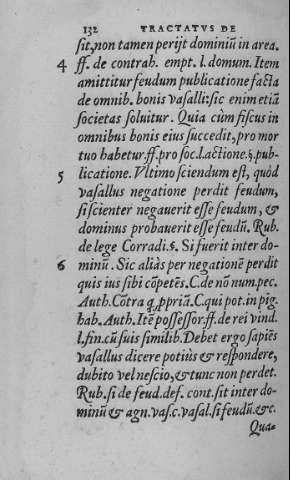 132 TRACTATVS DE
sit, non tamen perijt dominiũ in area.
4 ff. de contrah. empt. l. domum. Item
amittitur feudum publicatione facta
de omnib. bonis vasalli: sic enim etiã
societas soluitur. Quia cùm fiscus in
omnibus bonis eius succedit, pro mor
tuo habetur. ff. pro soc. l. actione. §. pub-
5 licatione. Vltimo sciendum est, quòd
vasallus negatione perdit feudum,
si scienter negauerit esse feudum, &
dominus probauerit esse feudũ. Rub.
de lege Corradi. §. Si fuerit inter do-
6 minũ. Sic aliàs per negationẽ perdit
quis ius sibi cõpetẽs. C. de nõ num. pec.
Auth. Cõtra q, ppriã. C. qui pot. in pig.
hab. Auth. Itẽ possessor. ff. de rei vind.
l. fin. cũ suis similib. Debet ergo sapiẽs
vasallus dicere potiùs & respondere,
dubito vel nescio, & tunc non perdet.
Rub. si de feud. def. cont. sit inter do-
minũ & agn. vas. c. vasal. si feudũ. &c.
Qua-